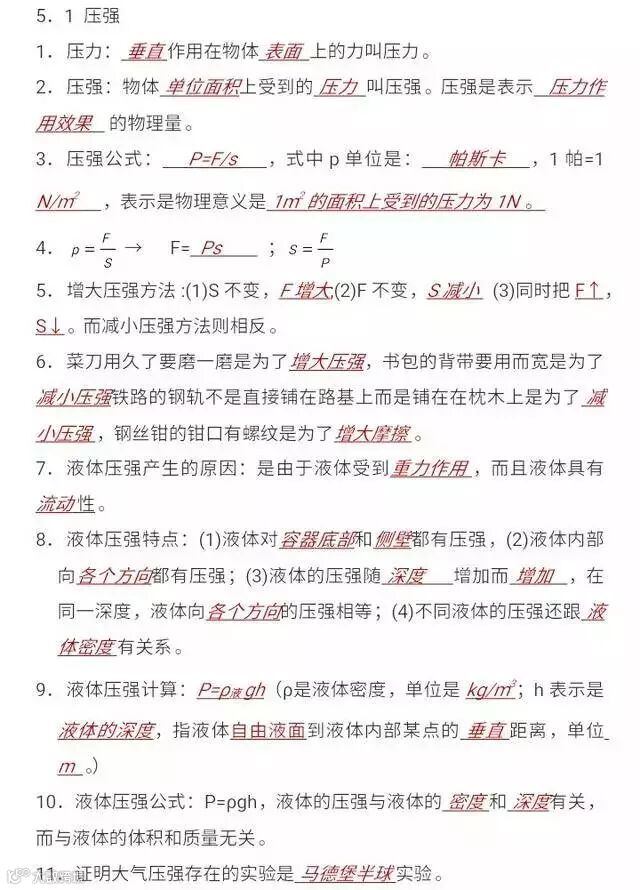 5．1 压强
1．压力：垂直作用在物体表面上的力叫压力。
2．压强：物体单位面积上受到的压力叫压强。压强是表示压力作
用效果的物理量。
3．压强公式：P=F/s，式中 p 单位是：帕斯卡，1 帕=1
N/m²，表示是物理意义是1m²的面积上受到的压力为1N。
4．p=F/S → F=Ps；s=F/P
5．增大压强方法 :(1)S 不变，F增大;(2)F 不变，S减小 (3)同时把F↑，
S↓。而减小压强方法则相反。
6．菜刀用久了要磨一磨是为了增大压强，书包的背带要用而宽是为了
减小压强铁路的钢轨不是直接铺在路基上而是铺在在枕木上是为了减
小压强，钢丝钳的钳口有螺纹是为了增大摩擦。
7．液体压强产生的原因：是由于液体受到重力作用，而且液体具有
流动性。
8．液体压强特点：(1)液体对容器底部和侧壁都有压强，(2)液体内部
向各个方向都有压强；(3)液体的压强随深度增加而增加，在
同一深度，液体向各个方向的压强相等；(4)不同液体的压强还跟液
体密度有关系。
9．液体压强计算：P=ρ液gh（ρ是液体密度，单位是kg/m³；h 表示是
液体的深度，指液体自由液面到液体内部某点的垂直距离，单位
m。）
10．液体压强公式：P=ρgh，液体的压强与液体的密度和深度有关，
而与液体的体积和质量无关。
11．证明大气压强存在的实验是马德堡半球实验。